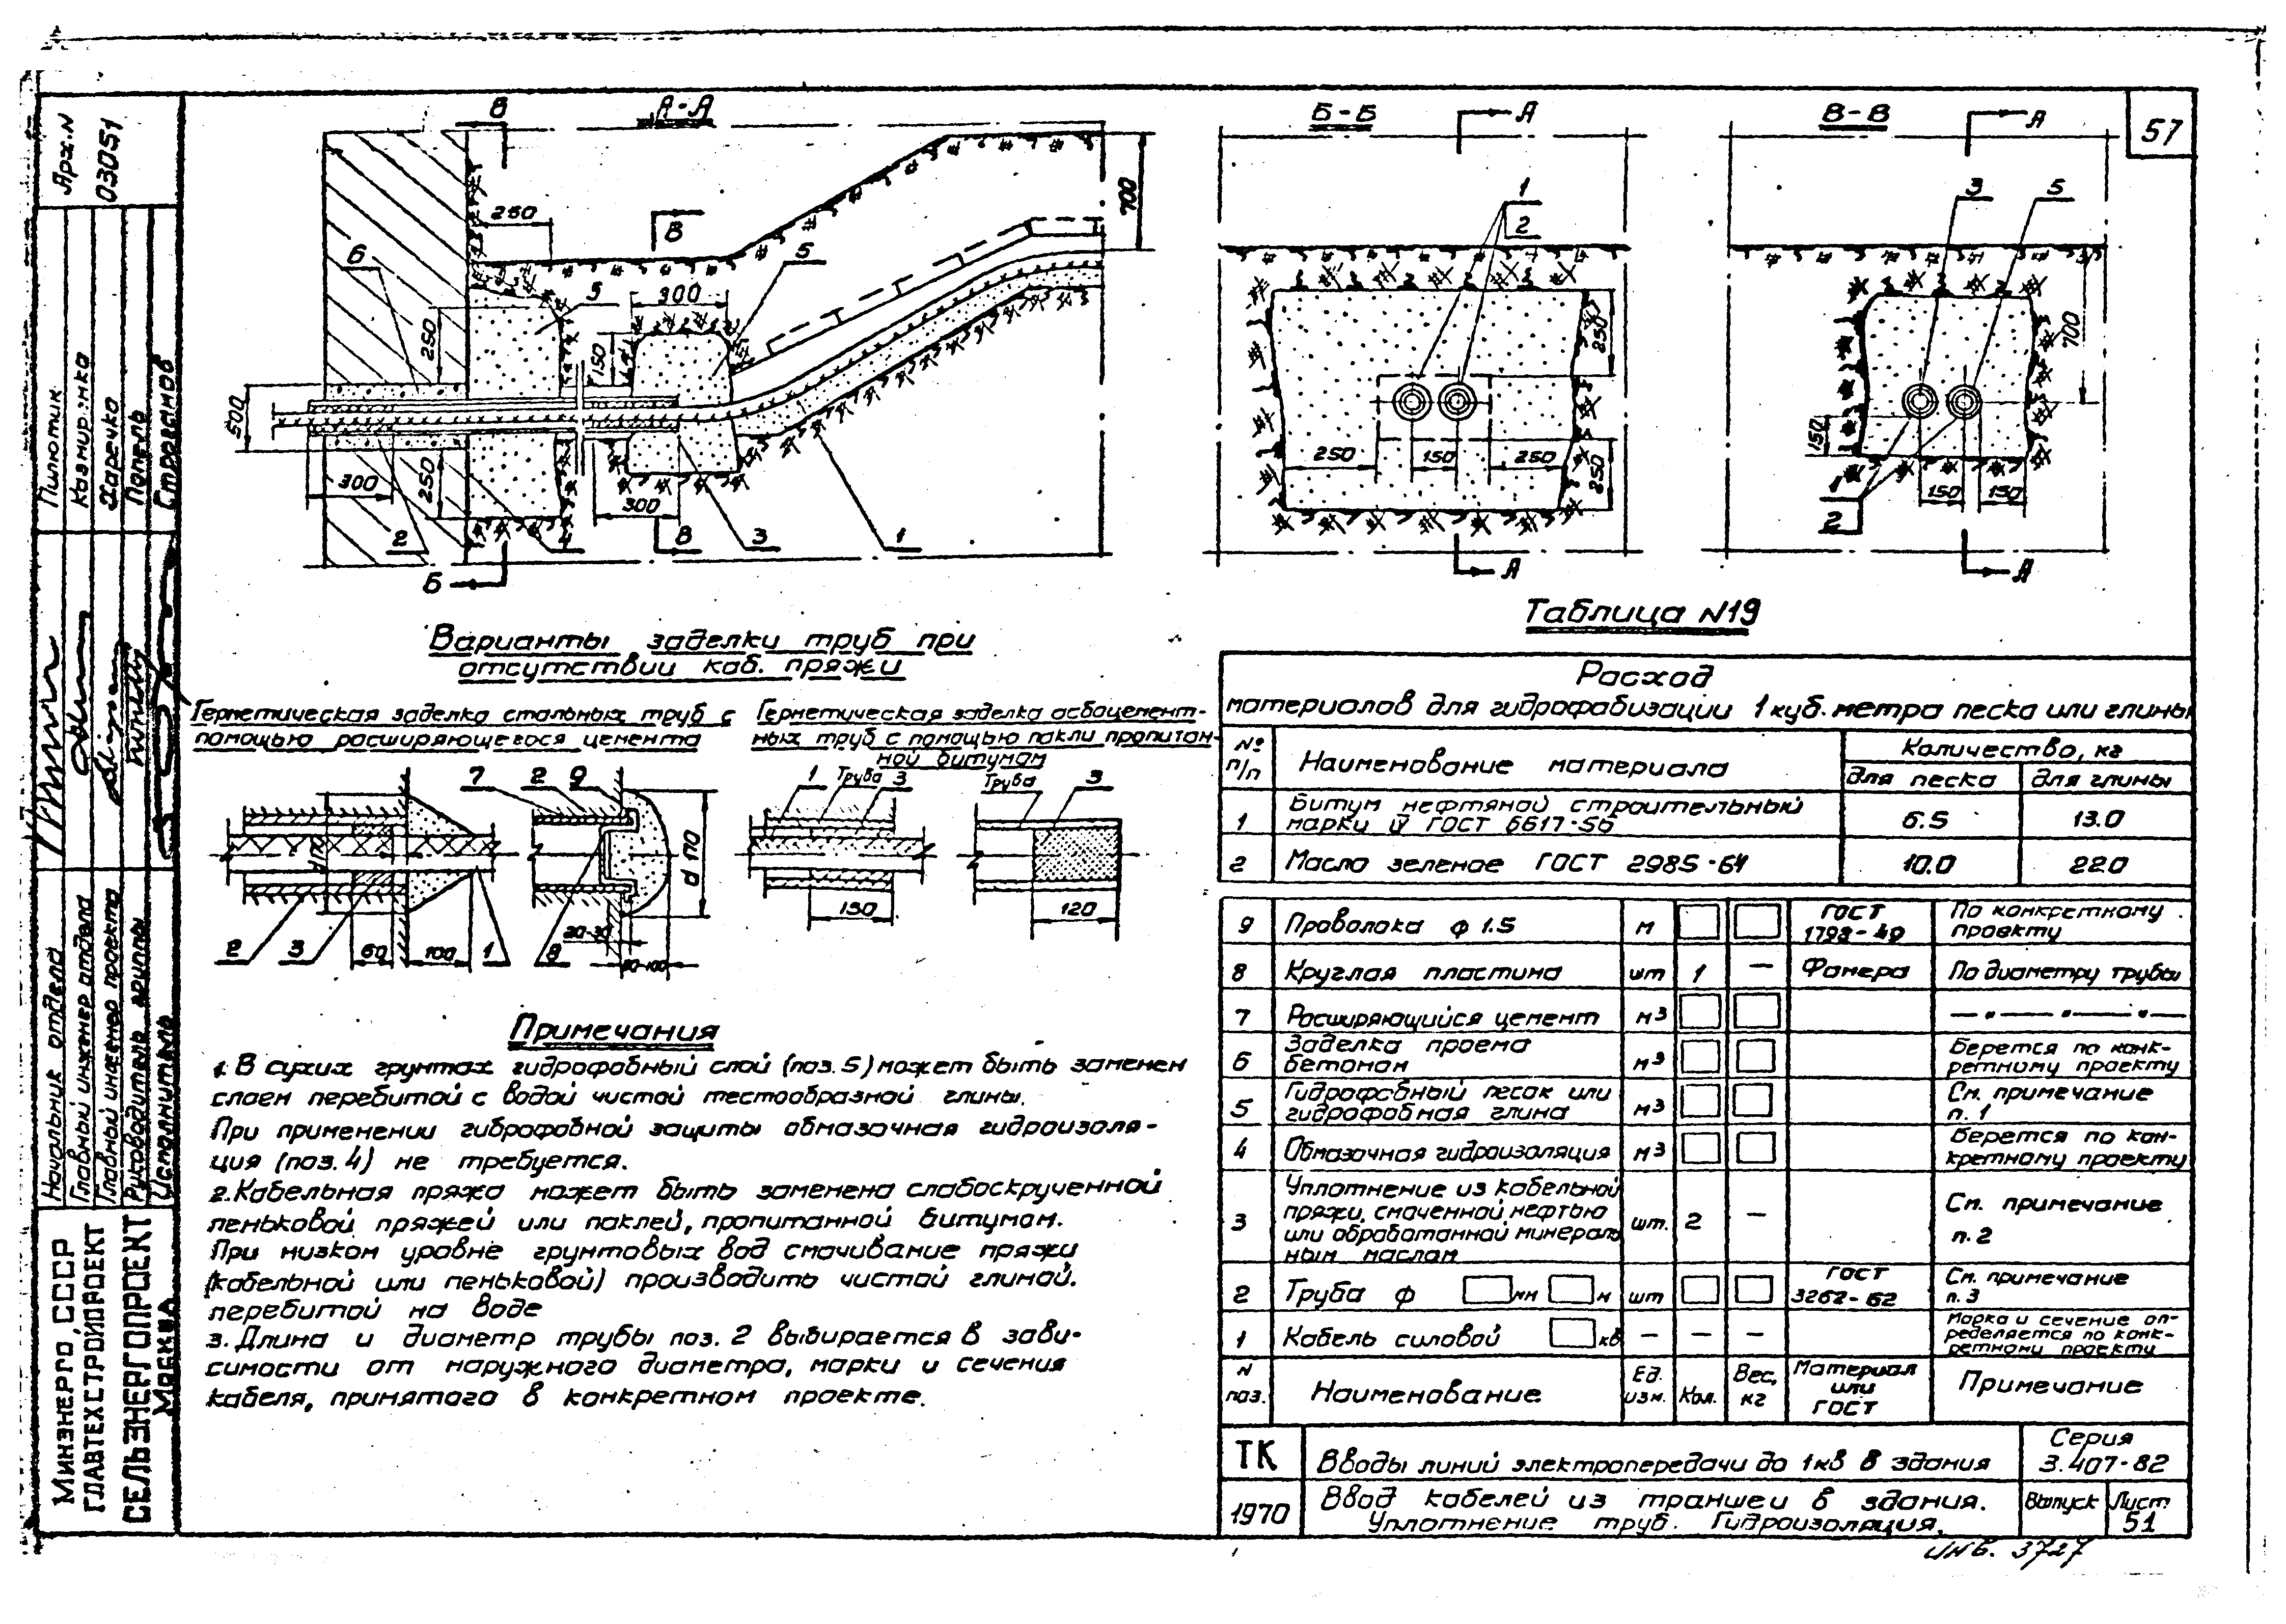 57
Арх.N
03051
Пилютик
Казмирчка
Харечко
Попель
Строганов
Начальник отдела
Главный инженер отдела
Главный инженер проекта
Руководитель группы
Исполнитель
Минэнерго, СССР
ГЛАВТЕХСТРОЙПРОЕКТ
СЕЛЬЭНЕРГОПРОЕКТ
Москва
А-А
В
250
6
В
5
5
300
700
250
150
500
300
250
300
2
4
В
3
1
Б
Б-Б
А
1
2
250
250
150
250
250
А
В-В
А
3
5
700
150
1
2
150
150
А
Варианты заделки труб при
отсутствии каб. пряжи
Герметическая заделка стальных труб с
помощью расширяющегося цемента
Герметическая заделка асбоцемент-
ных труб с помощью пакли пропитан-
ной битумом
7
2
9
d
d по
2
3
60
100
1
8
20-30
1
Труба
3
150
Труба
3
120
Примечания
1. В сухих грунтах гидрофобный слой (поз. 5) может быть заменен
слоем перебитой с водой чистой тестообразной глины.
При применении гиброфобной защиты обмазочная гидроизоля-
ция (поз. 4) не требуется.
2. Кабельная пряжа может быть заменена слабоскрученной
пеньковой пряжей или паклей, пропитанной битумом.
При низком уровне грунтовых вод смачивание пряжи
(кабельной или пеньковой) производить чистой глиной,
перебитой на воде
3. Длина и диаметр трубы поз. 2 выбирается в зави-
симости от наружного диаметра, марки и сечения
кабеля, принятого в конкретном проекте.
Таблица N19
Расход
материалов для гидрофабизации 1 куб. метра песка или глины
№ п/п
Наименование материала
Количество, кг
для песка
для глины
1
Битум нефтяной строительный
марки IV ГОСТ 6617-56
6.5
13.0
2
Масло зеленое ГОСТ 2985-64
10.0
22.0
9 Проволока ф 1.5 м ГОСТ 1798-49 По конкретному проекту
8 Круглая пластина шт 1 — Фанера По диаметру трубы
7 Расширяющийся цемент м3 — " — " — " —
6 Заделка проема бетоном м3 Берется по конк-
ретному проекту
5 Гидрофобный песок или
гидрофобная глина м3 См. примечание п. 1
4 Обмазочная гидроизоляция м3 Берется по кон-
кретному проекту
3 Уплотнение из кабельной
пряжи, смоченной нефтью
или обработанной минераль
ным маслом шт. 2 — См. примечание п. 2
2 Труба ф мм м шт ГОСТ 3262-62 См. примечание п. 3
1 Кабель силовой кв — — — Марка и сечение оп-
ределяется по конк-
ретному проекту
N поз. Наименование Ед. изм. Кол. Вес, кг Материал или ГОСТ Примечание
ТК
Вводы линий электропередачи до 1кв в здания
Серия
3.407-82
1970
Ввод кабелей из траншеи в здания.
Уплотнение труб. Гидроизоляция.
Выпуск
Лист
51
инв. 3727